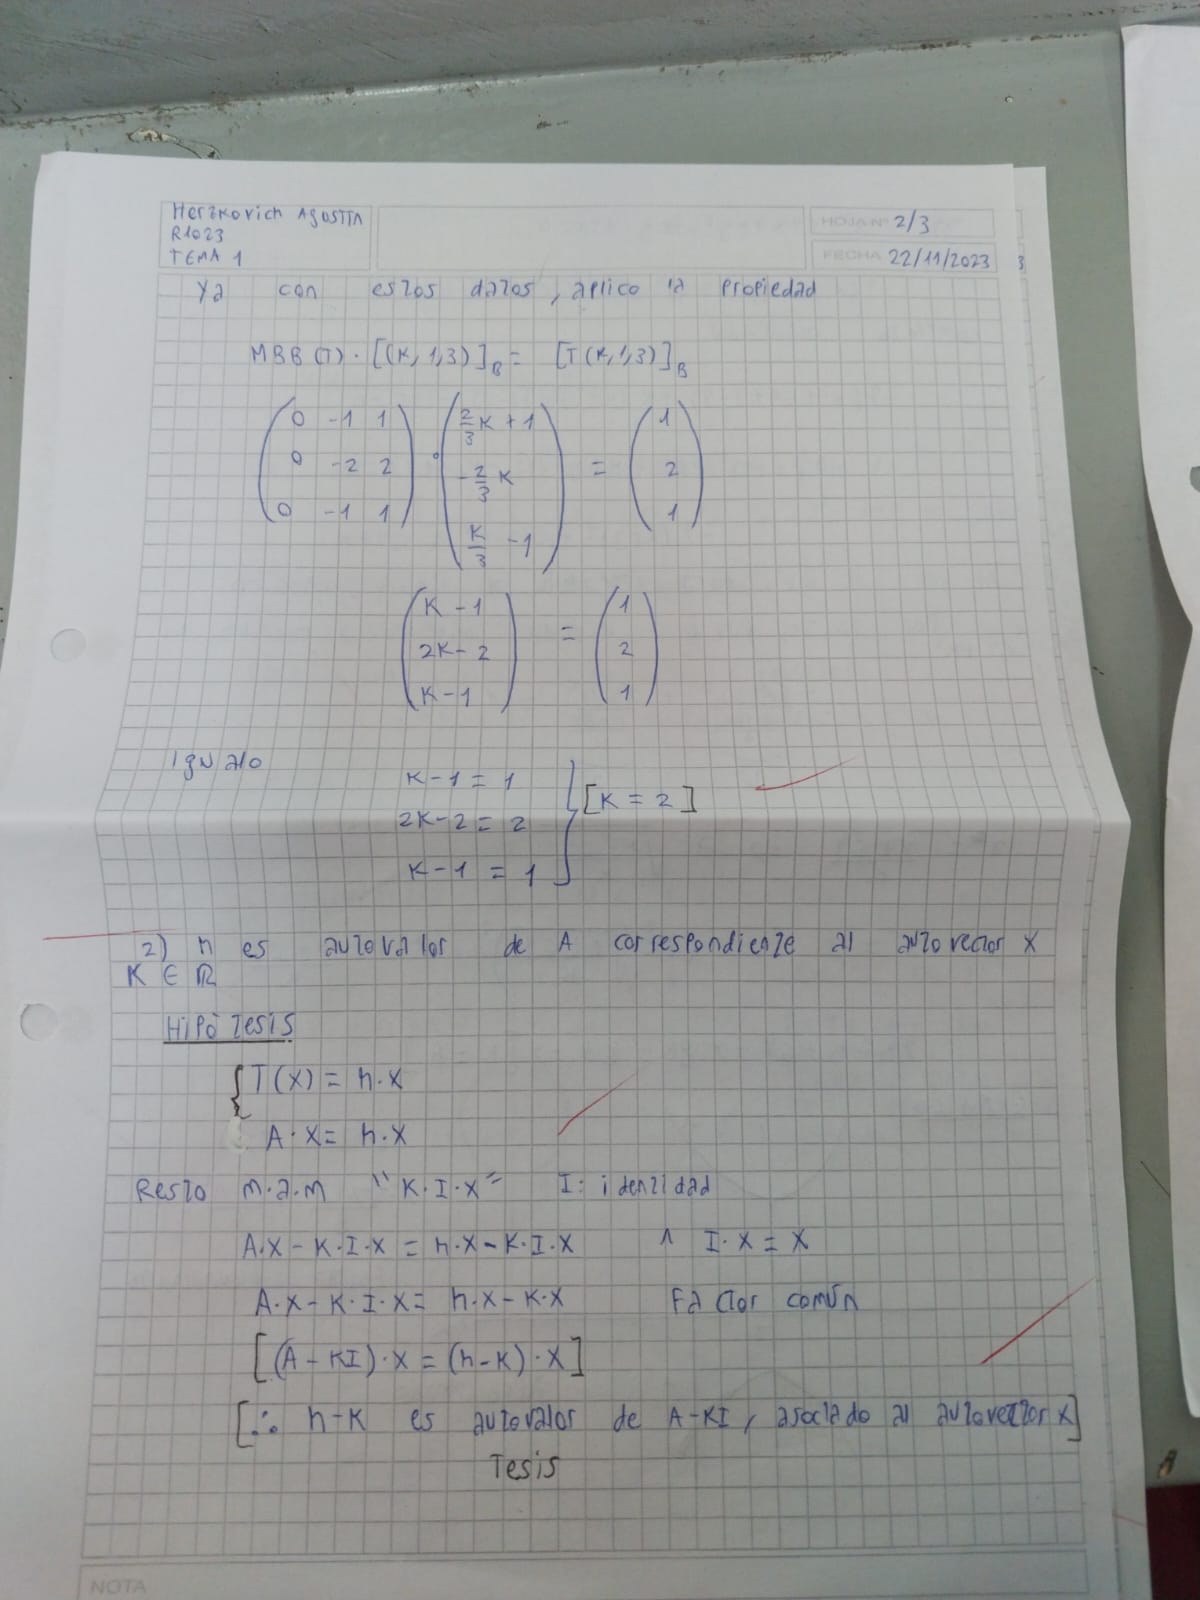 Herzkovich Agustin
R1023
TEMA 1
HOJA Nº 2/3
FECHA 22/11/2023
Ya con estos datos, aplico la propiedad
MBB(T) · [(K,1,3)]B = [T(K,1,3)]B
(0 -1 1) (2/3 K + 1) (1)
(0 -2 2) · (-2/3 K) = (2)
(0 -1 1) (K/3 - 1) (1)
(K - 1) (1)
(2K - 2) = (2)
(K - 1) (1)
Igualo
K - 1 = 1
2K - 2 = 2 } [K = 2]
K - 1 = 1
2) h es autovalor de A correspondiente al autovector X
K ∈ ℝ
Hipótesis
{ T(X) = h·X
A·X = h·X
Resto m.a.m "K·I·X" I: identidad
A·X - K·I·X = h·X - K·I·X ∧ I·X = X
A·X - K·I·X = h·X - K·X Factor común
[(A - KI)·X = (h-K)·X]
[∴ h-K es autovalor de A-KI, asociado al autovector X]
Tesis
NOTA